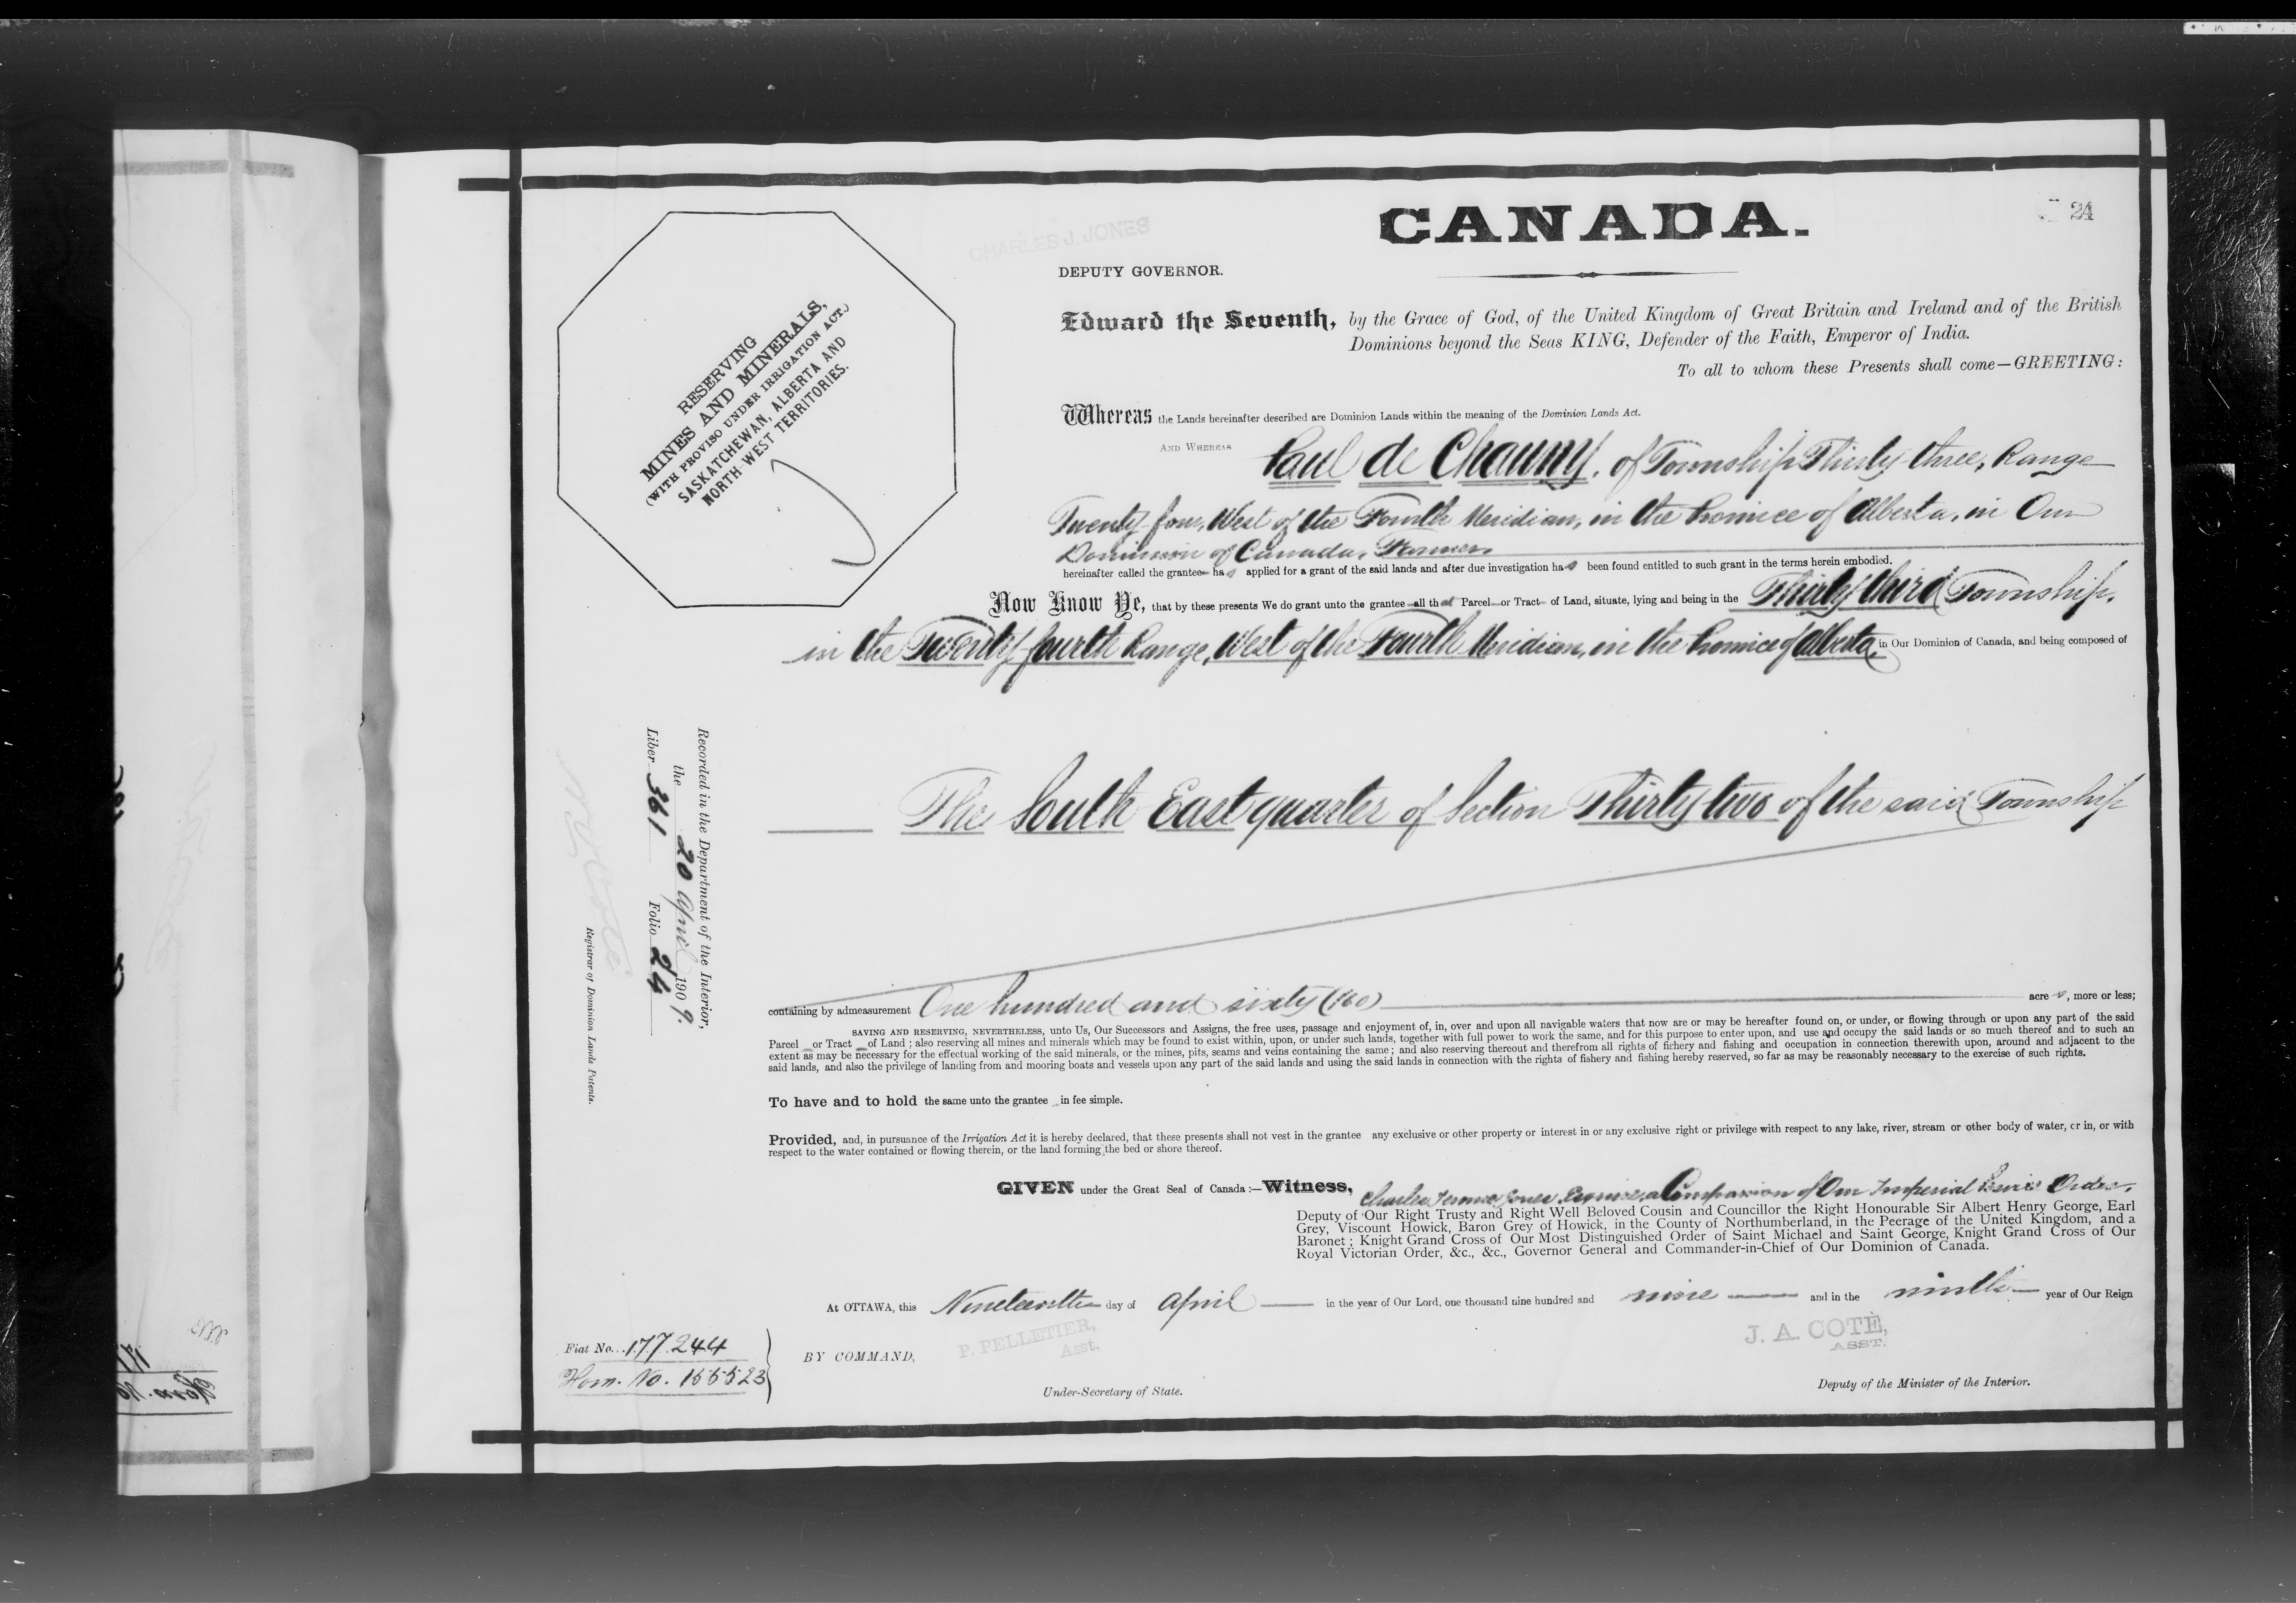 CANADA.
24
CHARLES J. JONES
DEPUTY GOVERNOR.
RESERVING
MINES AND MINERALS,
(WITH PROVISO UNDER IRRIGATION ACT.)
SASKATCHEWAN, ALBERTA AND
NORTH-WEST TERRITORIES.
Edward the Seventh, by the Grace of God, of the United Kingdom of Great Britain and Ireland and of the British
Dominions beyond the Seas KING, Defender of the Faith, Emperor of India.
To all to whom these Presents shall come—GREETING:
Whereas the Lands hereinafter described are Dominion Lands within the meaning of the Dominion Lands Act.
AND WHEREAS Paul de Chauny, of Township Thirty-three, Range
Twenty-four, West of the Fourth Meridian, in the Province of Alberta, in Our
Dominion of Canada, Farmer
hereinafter called the grantee has applied for a grant of the said lands and after due investigation has been found entitled to such grant in the terms herein embodied.
Now Know Ye, that by these presents We do grant unto the grantee all that Parcel or Tract of Land, situate, lying and being in the Thirty third Township,
in the Twenty fourth Range, West of the Fourth Meridian, in the Province of Alberta, in Our Dominion of Canada, and being composed of
The South East quarter of Section Thirty two of the said Township
containing by admeasurement One hundred and sixty (160) acres, more or less;
SAVING AND RESERVING, NEVERTHELESS, unto Us, Our Successors and Assigns, the free uses, passage and enjoyment of, in, over and upon all navigable waters that now are or may be hereafter found on, or under, or flowing through or upon any part of the said
Parcel or Tract of Land; also reserving all mines and minerals which may be found to exist within, upon, or under such lands, together with full power to work the same, and for this purpose to enter upon, and use and occupy the said lands or so much thereof and to such an
extent as may be necessary for the effectual working of the said minerals, or the mines, pits, seams and veins containing the same; and also reserving thereout and therefrom all rights of fishery and fishing and occupation in connection therewith upon, around and adjacent to the
said lands, and also the privilege of landing from and mooring boats and vessels upon any part of the said lands and using the said lands in connection with the rights of fishery and fishing hereby reserved, so far as may be reasonably necessary to the exercise of such rights.
To have and to hold the same unto the grantee in fee simple.
Provided, and, in pursuance of the Irrigation Act it is hereby declared, that these presents shall not vest in the grantee any exclusive or other property or interest in or any exclusive right or privilege with respect to any lake, river, stream or other body of water, or in, or with
respect to the water contained or flowing therein, or the land forming the bed or shore thereof.
GIVEN under the Great Seal of Canada:—Witness, Charles Jones, Esquire, a Companion of Our Imperial Service Order,
Deputy of Our Right Trusty and Right Well Beloved Cousin and Councillor the Right Honourable Sir Albert Henry George, Earl
Grey, Viscount Howick, Baron Grey of Howick, in the County of Northumberland, in the Peerage of the United Kingdom, and a
Baronet; Knight Grand Cross of Our Most Distinguished Order of Saint Michael and Saint George, Knight Grand Cross of Our
Royal Victorian Order, &c., &c., Governor General and Commander-in-Chief of Our Dominion of Canada.
At OTTAWA, this Nineteenth day of April in the year of Our Lord, one thousand nine hundred and nine and in the ninth year of Our Reign
BY COMMAND,
P. PELLETIER,
Asst.
Under-Secretary of State.
J. A. COTÉ,
ASST.
Deputy of the Minister of the Interior.
Fiat No. 177244
Hom. No. 155523
Recorded in the Department of the Interior,
the 20 April 1909.
Liber 361 Folio 24
Registrar of Dominion Lands Patents.